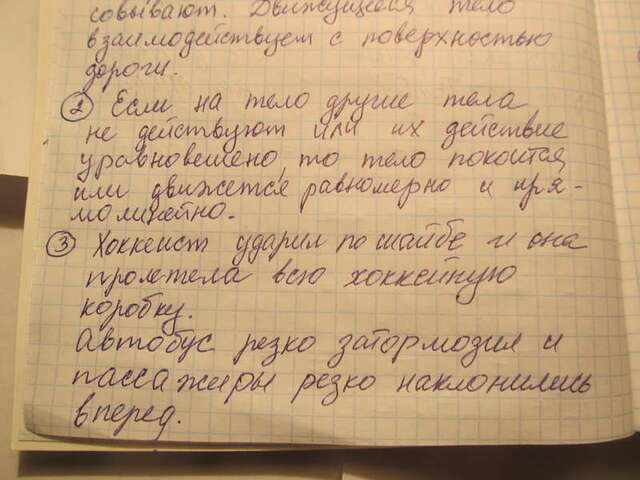 совывают. Движущееся тело
взаимодействует с поверхностью
дороги.
② Если на тело другие тела
не действуют или их действие
уравновешено, то тело покоится
или движется равномерно и пря-
молинейно.
③ Хоккеист ударил по шайбе и она
пролетела всю хоккейную
коробку.
Автобус резко затормозил и
пассажиры резко наклонились
вперед.